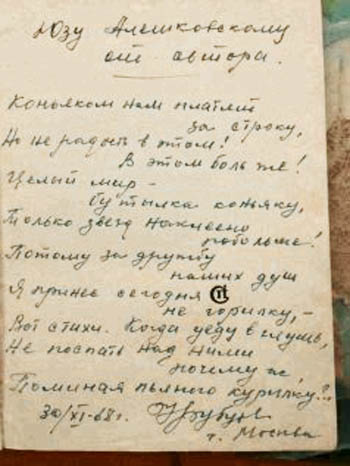 Юзу Алешковскому
от автора.
Коньяком нам платят
за строку,
Но не радость в этом!
В этом боль же!
Целый мир –
бутылка коньяку,
Только звезд наклеено
побольше!
Потому за дружбу
наших душ
Я принес сегодня
не горилку, –
Вот стихи. Когда уеду в глушь,
Не поспать над ними
почему ж,
Поминая пьяного курилку?..
30/XI-68 г.
г. Москва